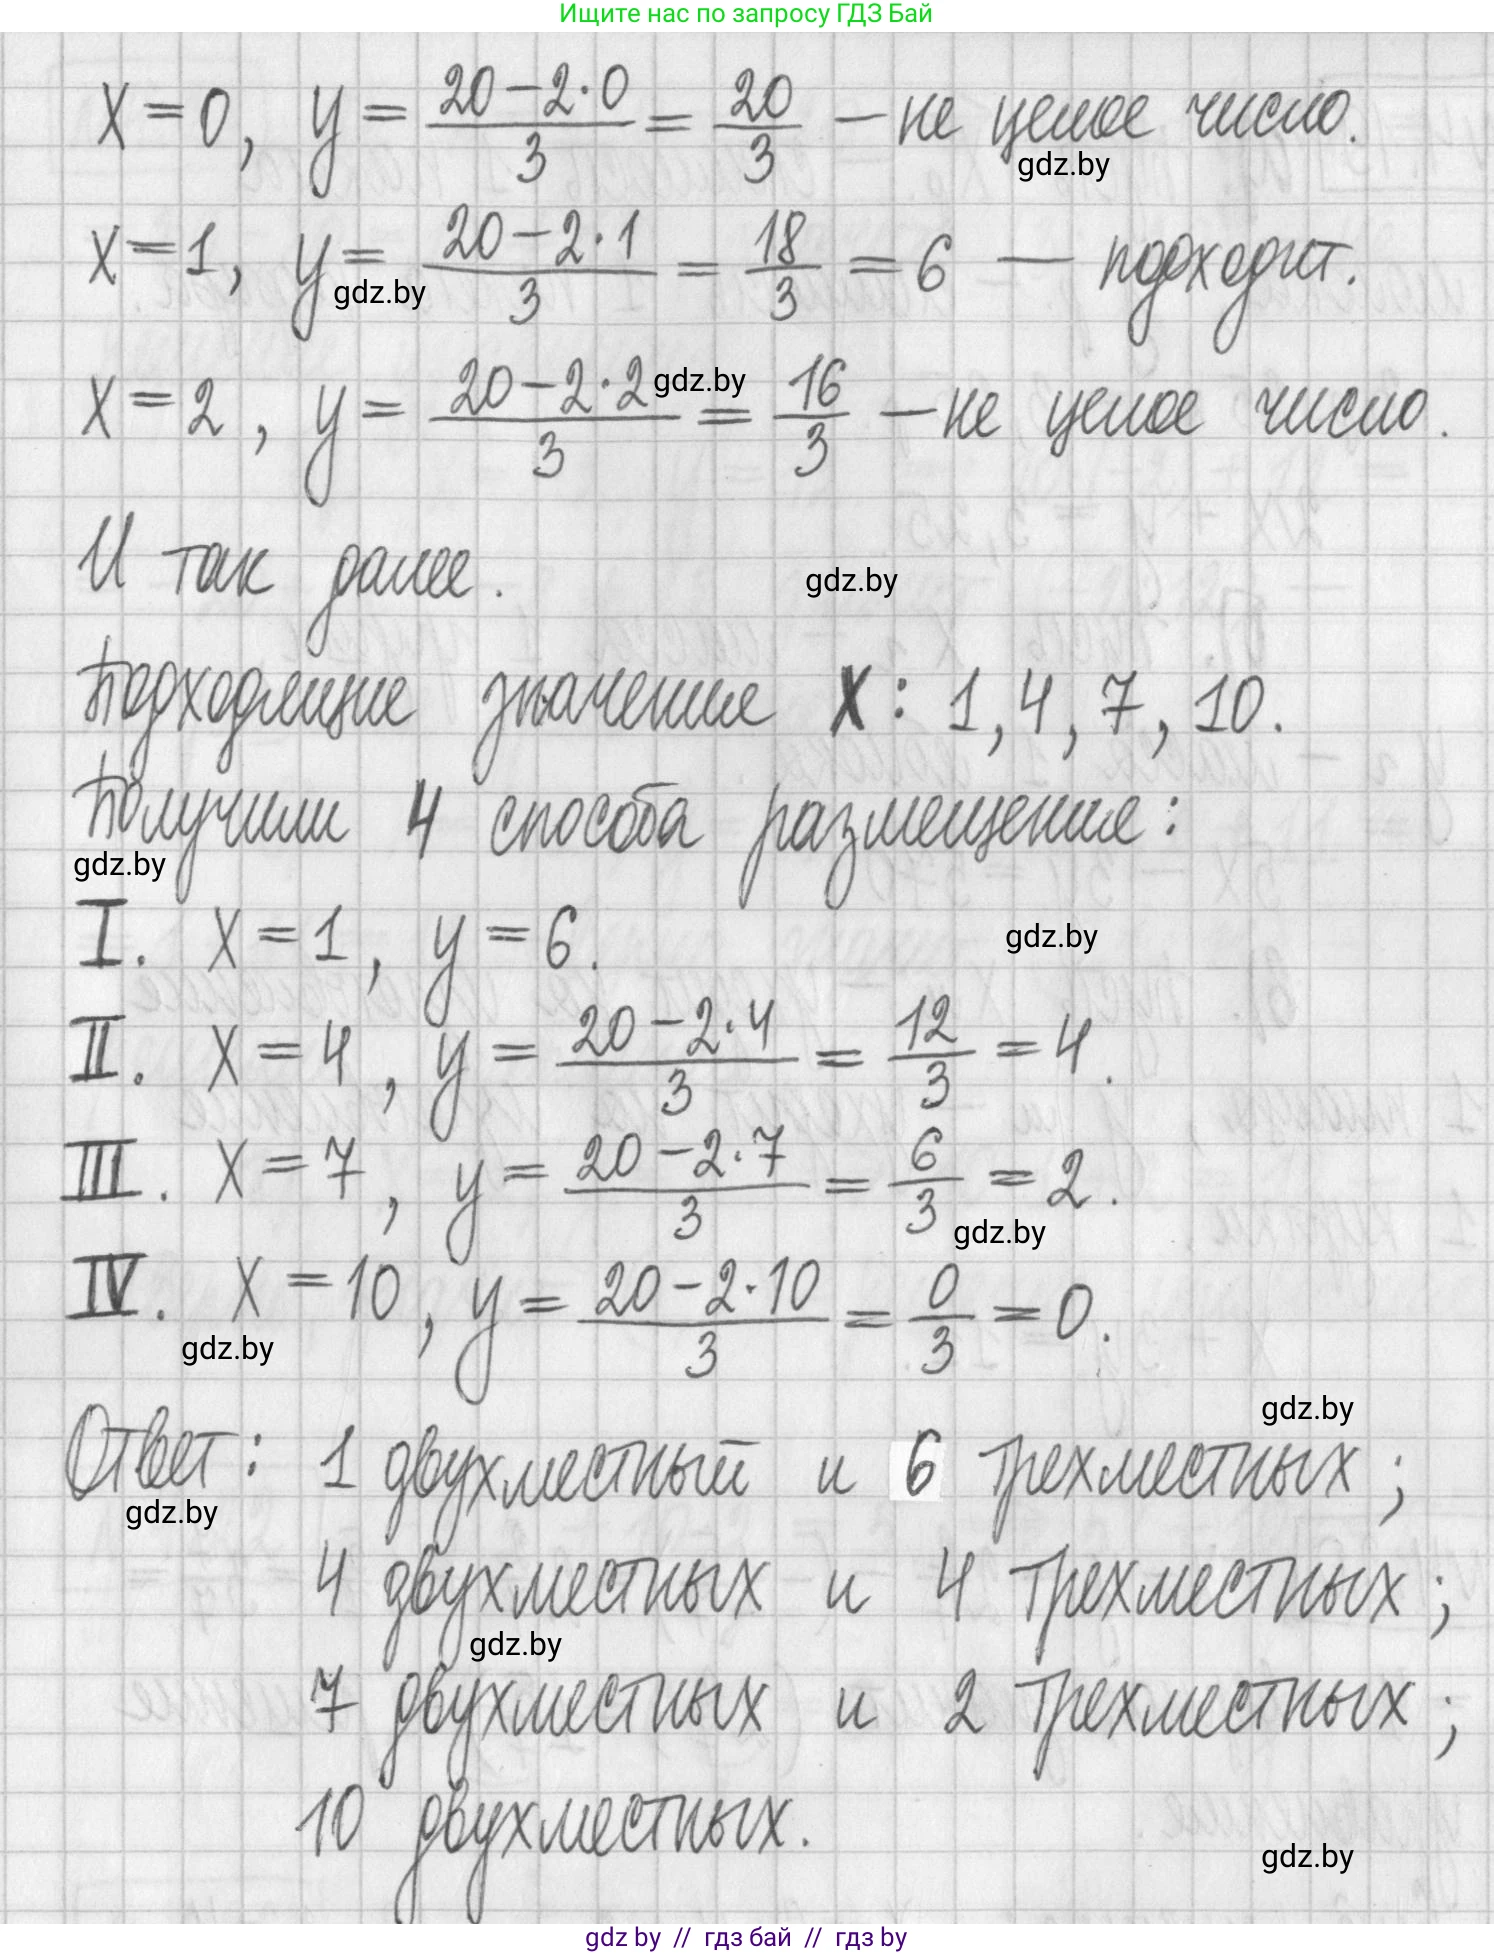 Ищите нас по запросу ГДЗ Бай
x = 0, y = (20 - 2·0)/3 = 20/3 - не целое число.
gdz.by
x = 1, y = (20 - 2·1)/3 = 18/3 = 6 - подходит.
gdz.by
x = 2, y = (20 - 2·2)/3 = 16/3 - не целое число.
gdz.by
И так далее.
gdz.by
Подходящие значения x: 1, 4, 7, 10.
Получили 4 способа размещения:
gdz.by
I. x = 1, y = 6.
gdz.by
II. x = 4, y = (20 - 2·4)/3 = 12/3 = 4.
III. x = 7, y = (20 - 2·7)/3 = 6/3 = 2.
gdz.by
IV. x = 10, y = (20 - 2·10)/3 = 0/3 = 0.
gdz.by
gdz.by
Ответ: 1 двухместный и 6 трехместных;
gdz.by
4 двухместных и 4 трехместных;
gdz.by
7 двухместных и 2 трехместных;
10 двухместных.
gdz.by
gdz by // гдз бай // гдз by